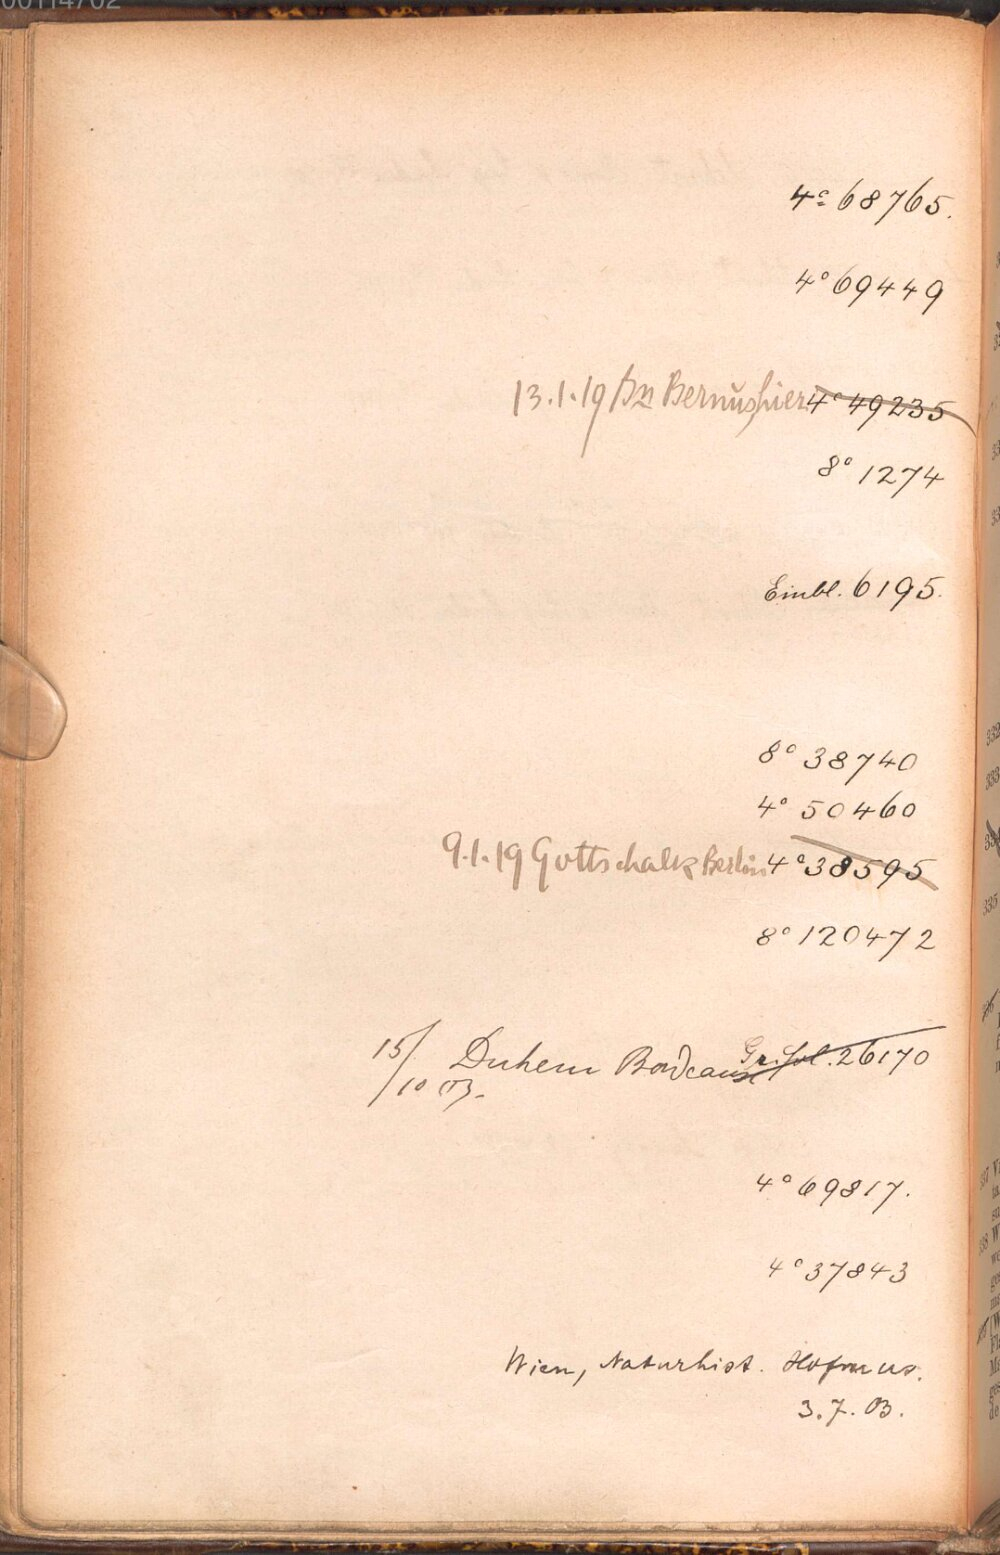 00114702
4° 68765.
4° 69449
13.1.19 Bernus, hier 4° 49235
8° 1274
Einbl. 6195.
8° 38740
4° 50460
9.1.19 Gottschalk Berlin 4° 38595
8° 120472
15/10 03. Duhem Bordeaux Gr. fol. 26170
4° 69817.
4° 37843
Wien, Naturhist. Hofmus.
3.7.03.